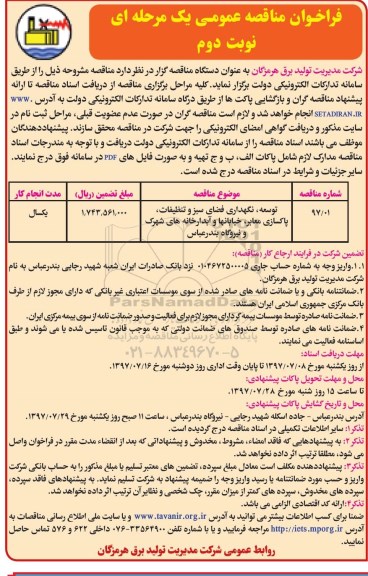 فراخوان مناقصه عمومی یک مرحله ای
نوبت دوم
شرکت مدیریت تولید برق هرمزگان به عنوان دستگاه مناقصه گزار در نظر دارد مناقصه مشروحه ذیل را از طریق
سامانه تدارکات الکترونیکی دولت برگزار نماید. کلیه مراحل برگزاری مناقصه از دریافت اسناد مناقصه تا ارائه
پیشنهاد مناقصه گران و بازگشایی پاکت ها از طریق درگاه سامانه تدارکات الکترونیکی دولت به آدرس www.
SETADIRAN.IR انجام خواهد شد و لازم است مناقصه گران در صورت عدم عضویت قبلی، مراحل ثبت نام در
سایت مذکور و دریافت گواهی امضای الکترونیکی را جهت شرکت در مناقصه محقق سازند. پیشنهاددهندگان
موظف می باشند اسناد مناقصه را از سامانه تدارکات الکترونیکی دولت دریافت و با توجه به مندرجات اسناد
مناقصه مدارک لازم شامل پاکات الف، ب و ج تهیه و به صورت فایل های PDF در سامانه فوق درج نمایند.
سایر جزئیات و شرایط در اسناد مناقصه درج شده است.
شماره مناقصه موضوع مناقصه مبلغ تضمین (ریال) مدت انجام کار
۹۷/۰۱ توسعه، نگهداری فضای سبز و تنظیفات، پاکسازی معابر، خیابانها و آبدارخانه های شهرک و نیروگاه بندرعباس ۱,۷۴۳,۵۶۱,۰۰۰ یکسال
تضمین شرکت در فرایند ارجاع کار (مناقصه):
۱.۱.واریز وجه به شماره حساب جاری ۰۱۰۳۶۷۲۵۰۰۰۰۵ نزد بانک صادرات ایران شعبه شهید رجایی بندرعباس به نام
شرکت مدیریت تولید برق هرمزگان.
۲.ضمانتنامه بانکی و یا ضمانت نامه های صادر شده از سوی موسسات اعتباری غیر بانکی که دارای مجوز لازم از طرف
بانک مرکزی جمهوری اسلامی ایران هستند.
۳.ضمانت نامه صادره توسط موسسات بیمه گر دارای مجوز لازم برای فعالیت و صدور ضمانت نامه از سوی بیمه مرکزی ایران.
۴.ضمانت نامه های صادره توسط صندوق های ضمانت دولتی که به موجب قانون تاسیس شده یا می شوند و طبق
اساسنامه فعالیت می نمایند.
مهلت دریافت اسناد:
از روز یکشنبه مورخ ۱۳۹۷/۰۷/۰۸ تا پایان وقت اداری روز دوشنبه مورخ ۱۳۹۷/۰۷/۱۶
محل و مهلت تحویل پاکات پیشنهادی:
تا ساعت ۱۵ روز شنبه مورخ ۱۳۹۷/۰۷/۲۸.
محل و تاریخ گشایش پاکات پیشنهادی:
آدرس بندرعباس - جاده اسکله شهید رجایی - نیروگاه بندرعباس، ساعت ۱۱ صبح روز یکشنبه مورخ ۱۳۹۷/۰۷/۲۹.
تذکر۱: سایر اطلاعات تکمیلی در اسناد مناقصه درج گردیده است.
تذکر۲: به پیشنهادهایی که فاقد امضاء، مشروط، مخدوش و پیشنهاداتی که بعد از انقضاء مدت مقرر در فراخوان واصل
می شود، مطلقا ترتیب اثر داده نخواهد شد.
تذکر۳: پیشنهاددهنده مکلف است معادل مبلغ سپرده، تضمین های معتبر تسلیم یا مبلغ مذکور را به حساب بانکی شرکت
واریز و حسب مورد ضمانتنامه یا رسید واریز وجه را ضمیمه پیشنهاد به شرکت تسلیم نماید. به پیشنهادهای فاقد سپرده،
سپرده های مخدوش، سپرده های کمتر از میزان مقرر، چک شخصی و نظایر آن ترتیب اثر داده نخواهد شد.
تذکر۴: ارائه کد اقتصادی الزامی می باشد.
ضمنا برای کسب اطلاعات بیشتر می توانید به آدرس www.tavanir.org.ir و یا سایت ملی اطلاع رسانی مناقصات به
آدرس http://iets.mporg.ir مراجعه فرمایید و یا با شماره تلفن ۳۳۵۶۴۹۰۰-۰۷۶ داخلی ۶۲۲ و ۵۷۶ تماس حاصل
نمایید.
روابط عمومی شرکت مدیریت تولید برق هرمزگان
ParsNamadData
پایگاه اطلاع رسانی مناقصه و مزایده
۰۲۱-۸۸۳۴۹۶۷۰-۵